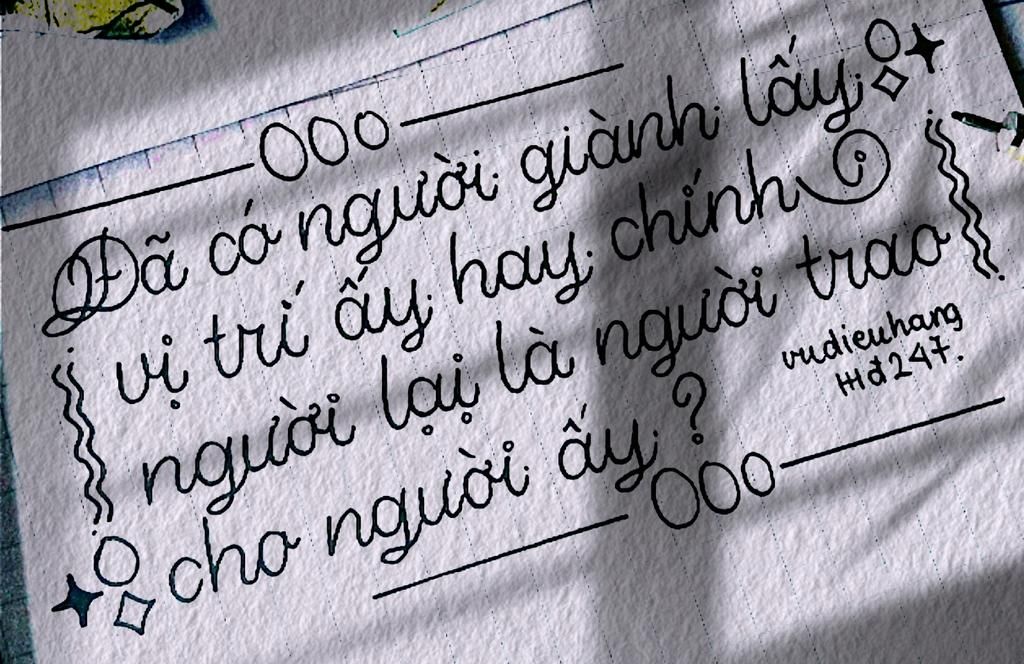 Đã có người giành lấy
vị trí ấy hay chính
người lại là người trao
cho người ấy?
vudieuhang
247.